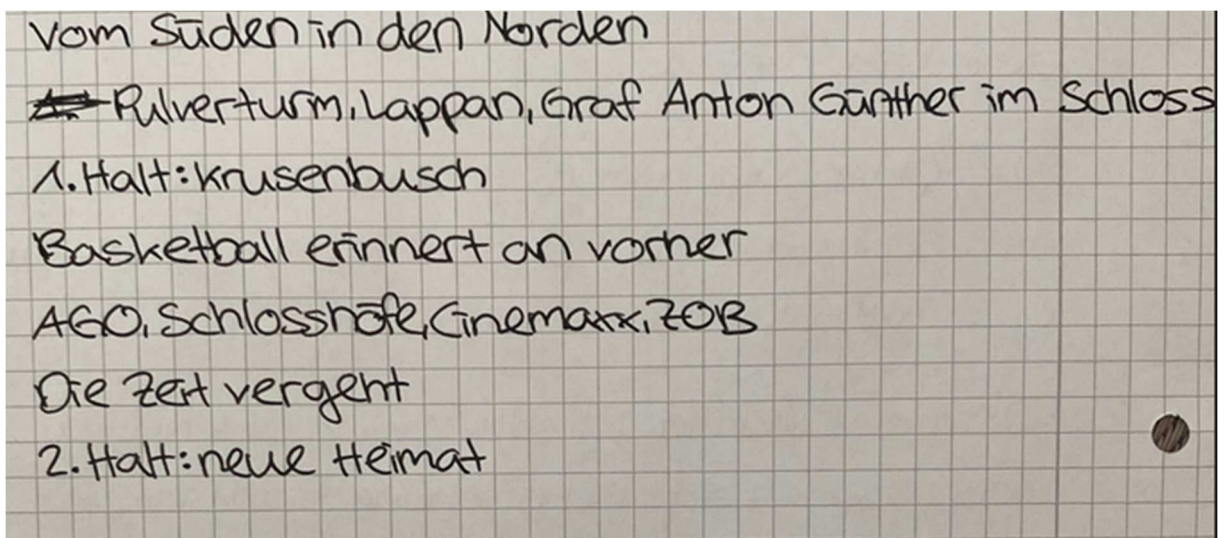 Vom Süden in den Norden
Pulverturm, Lappan, Graf Anton Günther im Schloss
1. Halt: Krusenbusch
Basketball erinnert an vorher
AGO, Schlosshöfe, Cinemaxx, ZOB
Die Zeit vergeht
2. Halt: neue Heimat